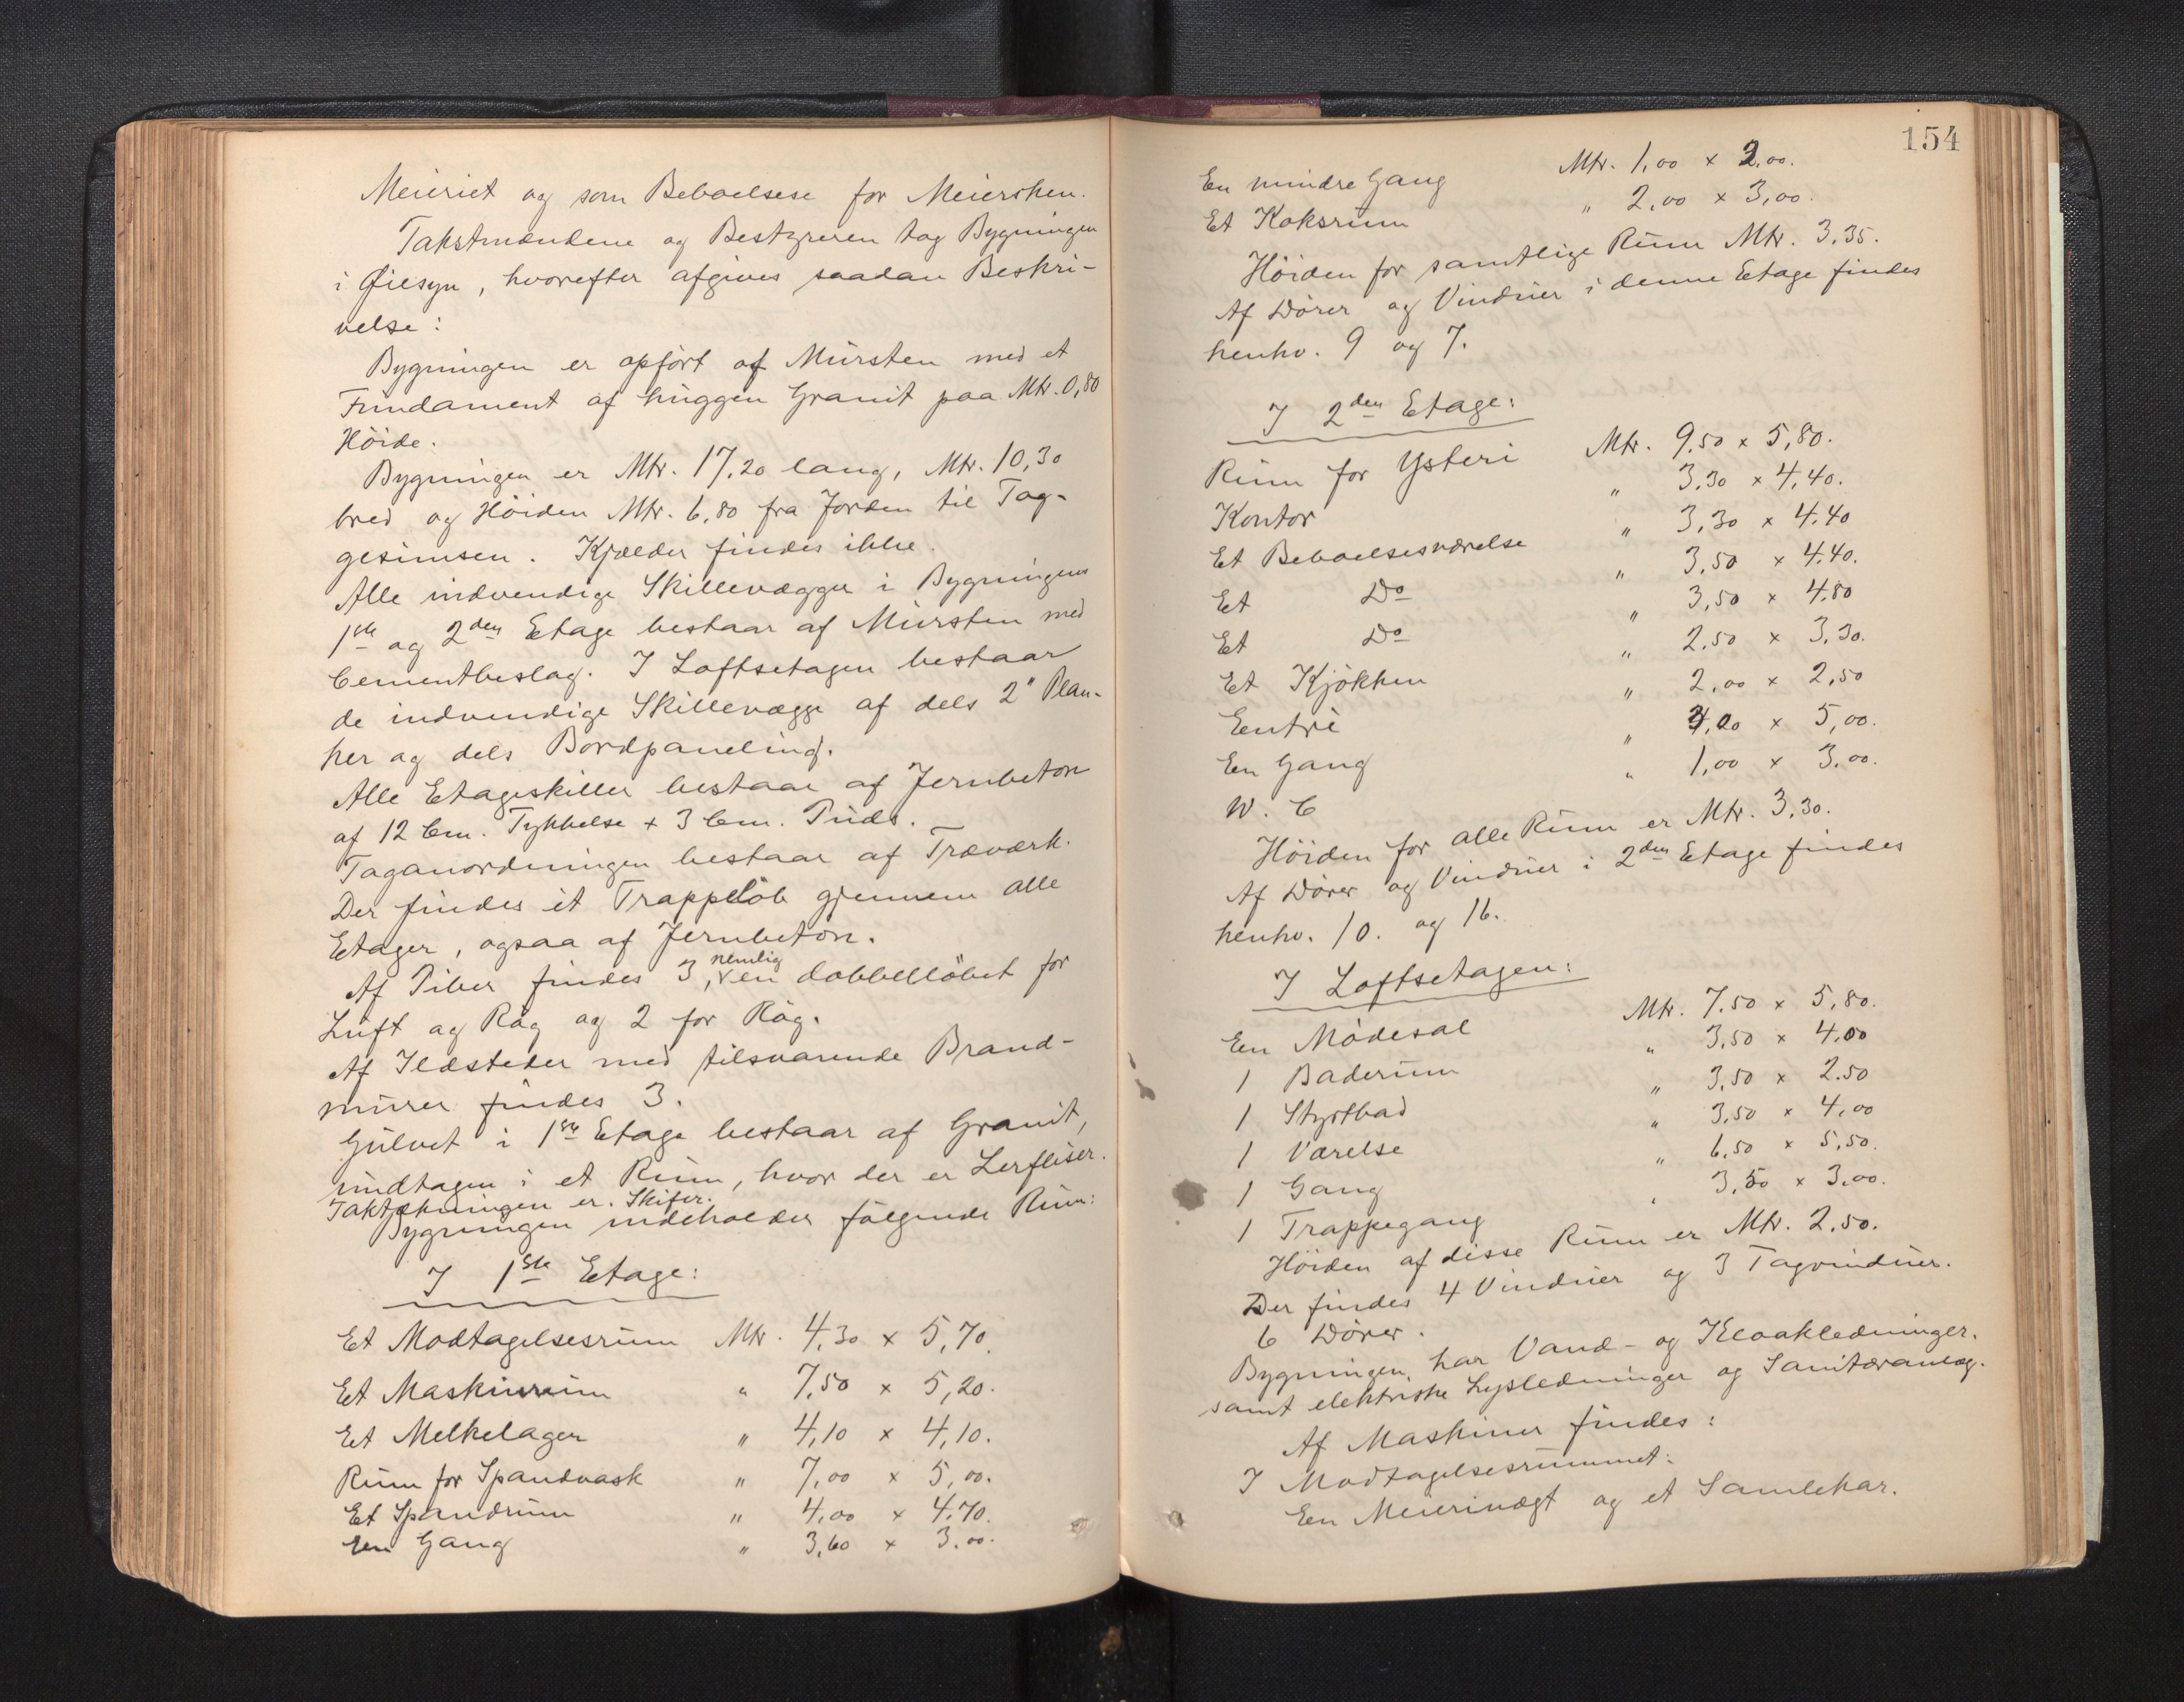 Meieriet og som Beboelsese for Meiersken.
Takstmændene og Bestyreren tog Bygningen
i Øiesyn, hvorefter afgives saadan Beskri-
velse:
Bygningen er opført af Mursten med et
Fundament af huggen Granit paa Mtr. 0,80
Høide.
Bygningen er Mtr. 17,20 lang, Mtr. 10,30
bred og Høiden Mtr. 6,80 fra Jorden til Tag-
gesimsen. Kjælder findes ikke.
Alle indvendige Skillevægge i Bygningens
1ste og 2den Etage bestaar af Mursten med
Cementbeslag. I Loftsetagen bestaar
de indvendige Skillevægge af dels 2" Plan-
ker og dels Bordpaneling.
Alle Etageskiller bestaar af Jernbeton
af 12 Cm. Tykkelse + 3 Cm. Puds.
Taganordningen bestaar af Træværk.
Der findes et Trappeløb gjennem alle
Etager, ogsaa af Jernbeton.
Af Piber findes 3, nemlig en dobbelløbet for
Luft og Røg og 2 for Røg.
Af Ildsteder med tilsvarende Brand-
murer findes 3.
Gulvet i 1ste Etage bestaar af Granit,
undtagen i et Rum, hvor der er Lerfliser.
Taktækningen er Skifer.
Bygningen indeholder følgende Rum:
I 1ste Etage:
Et Modtagelsesrum Mtr. 4,30 x 5,70.
Et Maskinrum " 7,50 x 5,20.
Et Melkelager " 4,10 x 4,10.
Rum for Spandvask " 7,00 x 5,00.
Et Spandrum " 4,00 x 4,70.
En Gang " 3,60 x 3,00.
154
En mindre Gang Mtr. 1,00 x 2,00.
Et Koksrum " 2,00 x 3,00.
Høiden for samtlige Rum Mtr. 3,35.
Af Dører og Vinduer i denne Etage findes
henhv. 9 og 7.
I 2den Etage:
Rum for Ysteri Mtr. 9,50 x 5,80.
Kontor " 3,30 x 4,40.
Et Beboelsesværelse " 3,30 x 4,40
Et Do " 3,50 x 4,40.
Et Do " 3,50 x 4,80
Et Kjøkken " 2,50 x 3,30.
Eentré " 2,00 x 2,50
En Gang " 4,00 x 5,00.
W. C " 1,00 x 3,00.
Høiden for alle Rum er Mtr. 3,30.
Af Dører og Vinduer i 2den Etage findes
henhv. 10. og 16.
I Loftsetagen:
En Mødesal Mtr. 7,50 x 5,80.
1 Baderum " 3,50 x 4,00
1 Styrtbad " 3,50 x 2.50
1 Værelse " 3,50 x 4,00
1 Gang " 6,50 x 5,50.
1 Trappegang " 3,50 x 3,00.
Høiden af disse Rum er Mtr. 2,50.
Der findes 4 Vinduer og 3 Tagvinduer.
6 Dører.
Bygningen har Vand- og Kloakledninger.
samt elektriske Lysledninger og Sanitæranlæg.
Af Maskiner findes:
I Modtagelsesrummet:
En Meierivægt og et Samlekar.